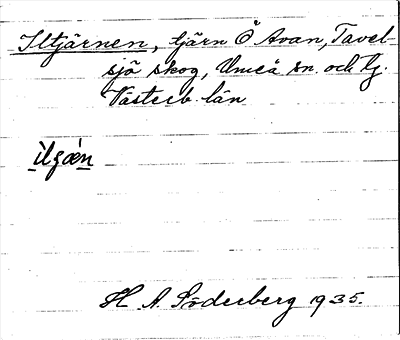 Iltjärnen, tjärn Ö Avan, Tavel-
sjö skog, Umeå sn. och tg.
Västerb. län
H. A. Söderberg 1935.